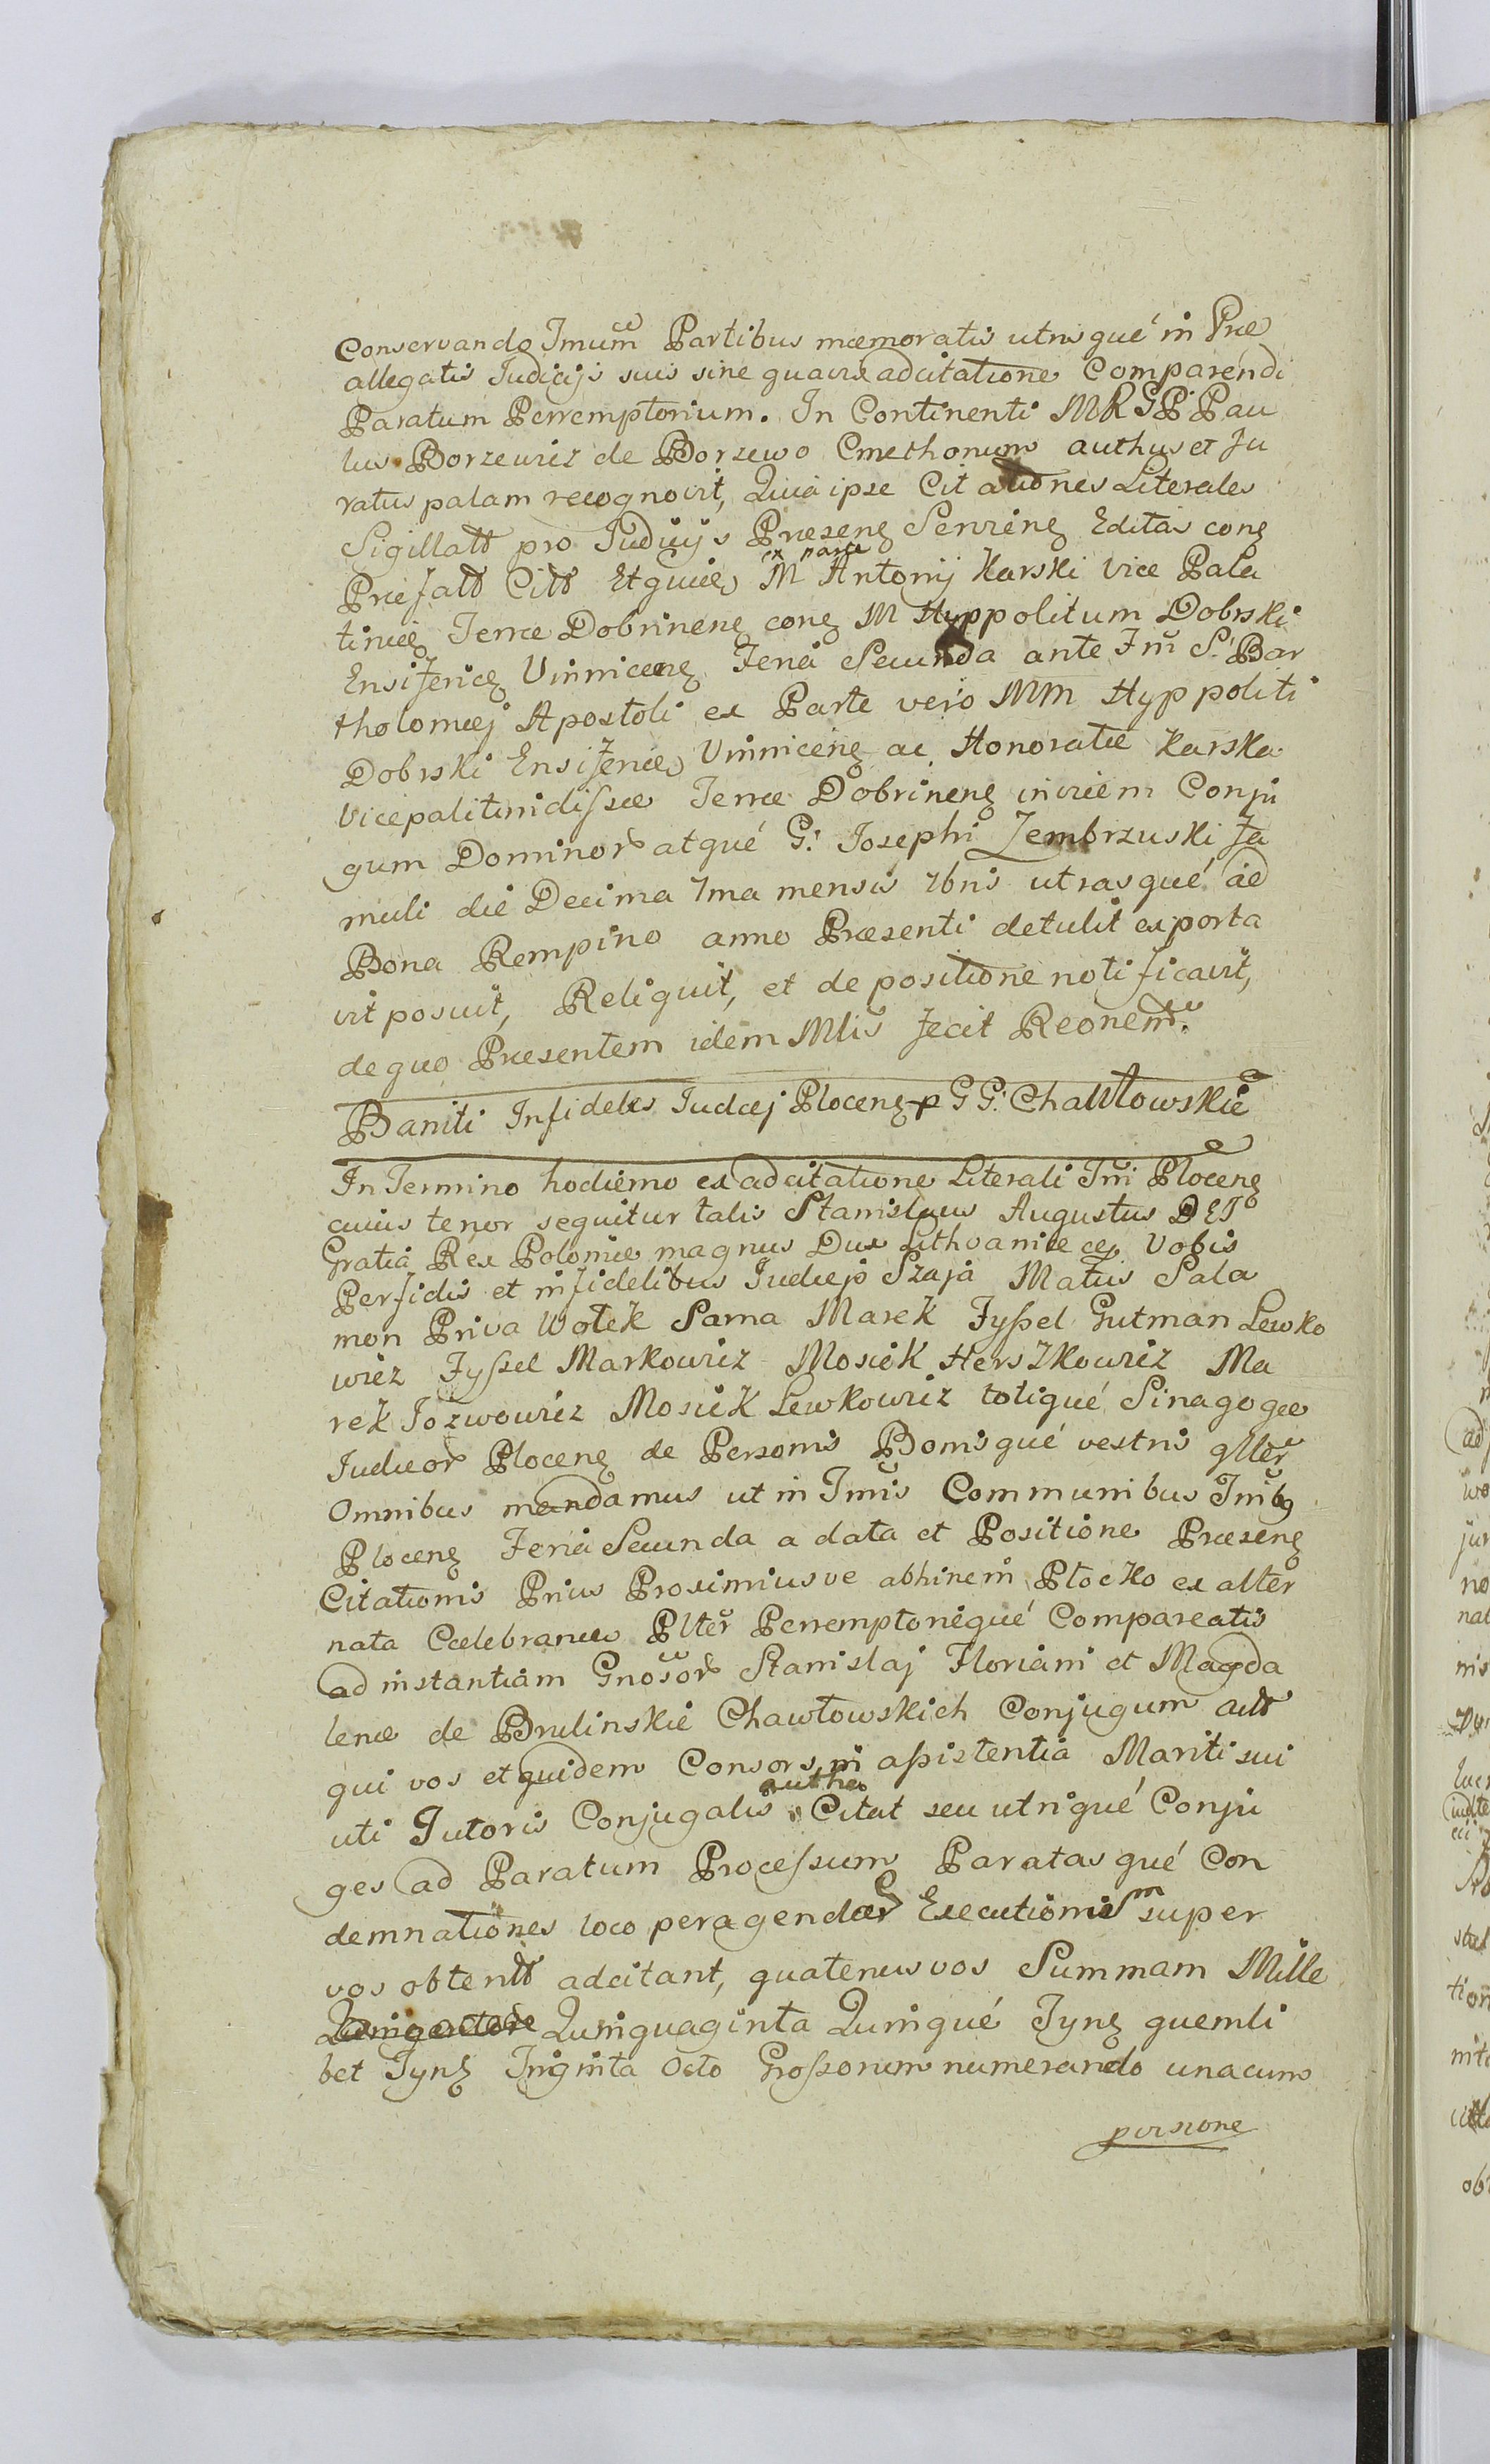 Conservando Tmum Partibus mæmoratis utrisque in Præ
allegatis Judicijs suis sine quavis adcitatione Comparendi
Paratum Perremptorium. In Continenti MRGP. Pau
lus Borzewicz de Borzewo Cmethonum authus et Ju
ratus palam recognovit, Quia ipse Citationes Literales
Sigillatt pro Judicijs Præsenz Servienz Editas conz
Præfatt Citt Et quid ex parte M Antonij Karski Vice Pala
tini Terræ Dobrinenz conz M Hyppolitum Dobrski
Ensiferiez Vinnicenz Feria Secunda ante Fm S. Bar
tholomæj Apostoli ex Parte vero MM Hyppoliti
Dobrski Ensiferi Vinnicenz ac Honoratæ Karska
Vicepalitinidissæ Terræ Dobrinenz invicem Conju
gum Dominor atque G: Josephi Zembrzuski Fa
muli die Decima 7ma mensis 7bris utrasque ad
Bona Rempino anno Præsenti detulit exporta
vit posuit, Reliquit, et de positione notificavit,
de quo Præsentem idem Mlis fecit Reonem.
Baniti Infideles Judæj Plocenz p GG. Chawłowskie
In Termino hodierno ex adcitatione Literali Tmi Plocenz
cuius tenor sequitur talis Stanislaus Augustus DEI
Gratia Rex Poloniæ magnus Dux Lithvaniæ etc. Vobis
Perfidis et infidelibus Judæjs Szaja Matus Sala
mon Priva Wołek Sarna Marek Fyssel Gutman Lewko
wicz Fyssel Markowicz Mosiek Herszkowicz Ma
rek Jozwowicz Mosiek Lewkowicz totique Sinagogæ
Judæor Plocenz de Personis Bonisque vestris gller
Omnibus mandamus ut in Tmis Communibus Tribq
Plocenz Feria Secunda a data et Positione Præsenz
Citationis Prius Proximiusve abhinem Płocko ex alter
nata Cælebrandis Plter Perremptorieque Compareatis
ad instantiam Gnosor Stanislaj Floriani et Magda
lenæ de Brulinskie Chawłowskich Conjugum actt
qui vos et quidem Consors in assistentia Mariti sui
uti Tutoris Conjugalis authes Citat seu utrique Conju
ges ad Paratum Processum Paratasque Con
demnationes loco peragendær Executionis super
vos obtentt adcitant, quatenus vos Summam Mille
Quinquaginta Quinque Tynz quemli
bet Tynz Triginta Octo Grossorum numerando unacum